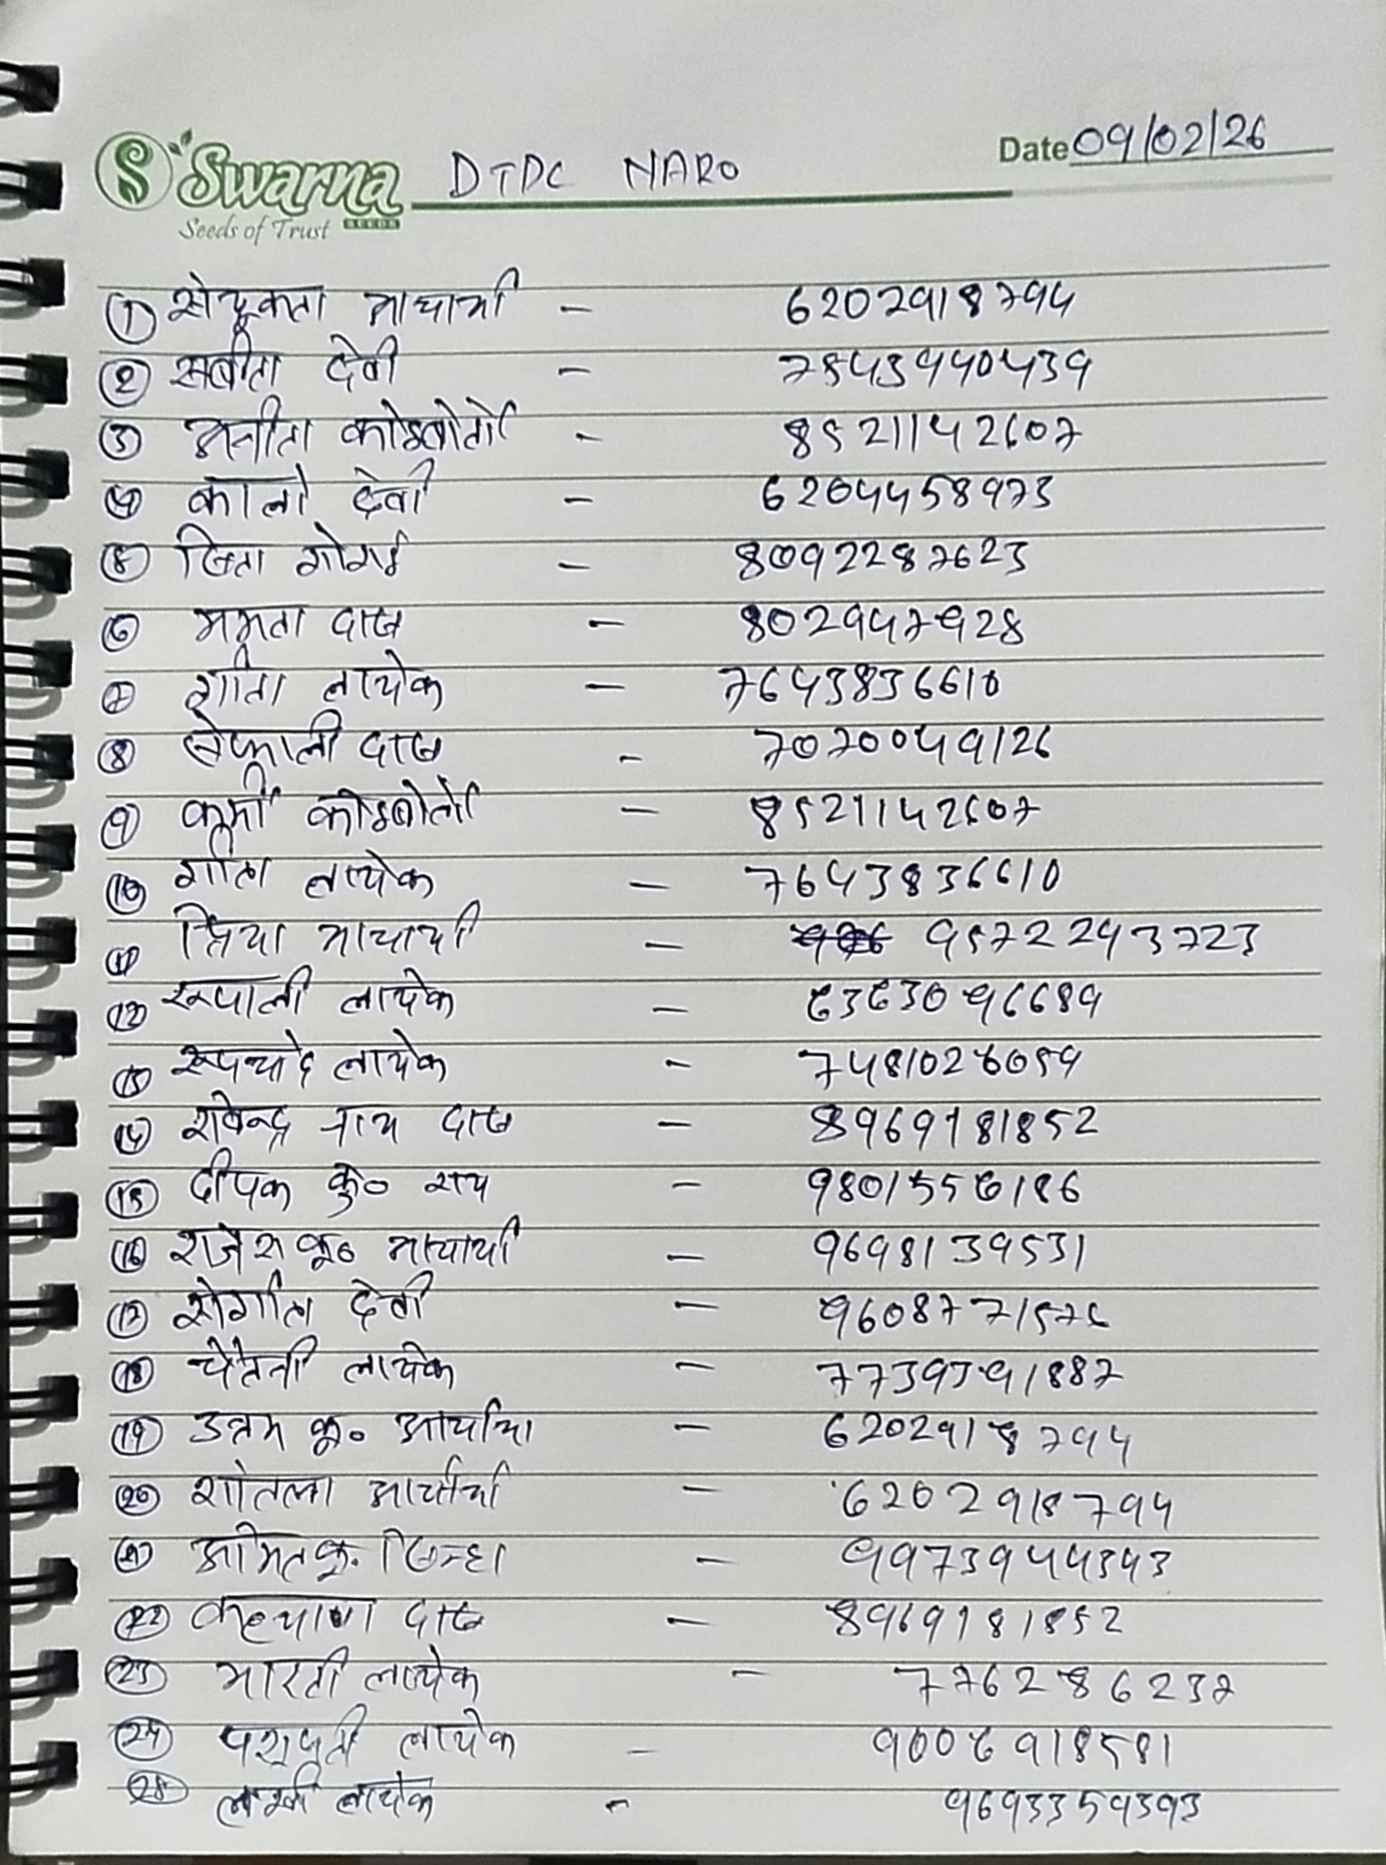 Swarna
SEEDS
Seeds of Trust
DTDC NARO
Date 09/02/26
① संयूक्ता आचार्या - 6202918794
② सबीता देवी - 7543940439
③ अनीता कोइबोर्तो - 8521142607
④ कालो देवी - 6204458973
⑤ - 8092287623
⑥ ममता दास - 802947928
⑦ गीता लायेक - 7643836610
⑧ सेफाली दास - 7070049126
⑨ कोइबोर्तो - 8521142607
⑩ गीता लायेक - 7643836610
⑪ प्रिया आचार्या - 9572243723
⑫ रूपाली लायेक - 6363096689
⑬ रूपचांद लायेक - 7481026059
⑭ रविन्द्र नाथ दास - 8969181852
⑮ दीपक कु० राय - 9801556186
⑯ राजेश कू० आचार्या - 9698139531
⑰ संगीता देवी - 9608771576
⑱ चैतनी लायेक - 7739391887
⑲ उत्तम कू० आर्चाया - 6202918794
⑳ शीतला आर्चाया - 6202918794
㉑ अमित कू. सिन्हा - 9973944343
㉒ कल्याण दास - 8969181852
㉓ भारती लायेक - 776286237
㉔ पशुपती लायेक - 9006918581
㉕ लखी लायेक - 9693359393